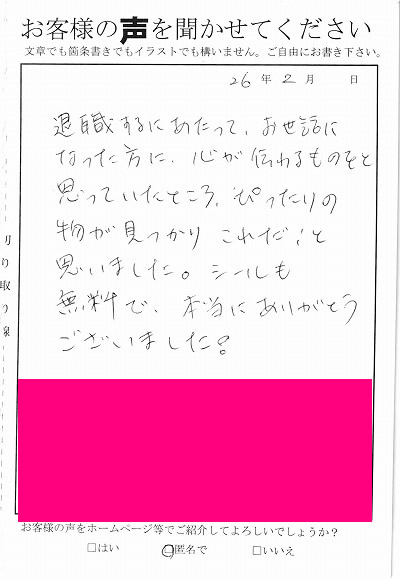 お客様の声を聞かせてください
文章でも箇条書きでもイラストでも構いません。ご自由にお書き下さい。
26年2月 日
退職するにあたって、お世話に
なった方に、心が伝わるものをと
思っていたところ、ぴったりの
物が見つかり これだ!と
思いました。シールも
無料で、本当にありがとう
ございました!
切り取り線
お客様の声をホームページ等でご紹介してよろしいでしょうか?
□はい □匿名で □いいえ